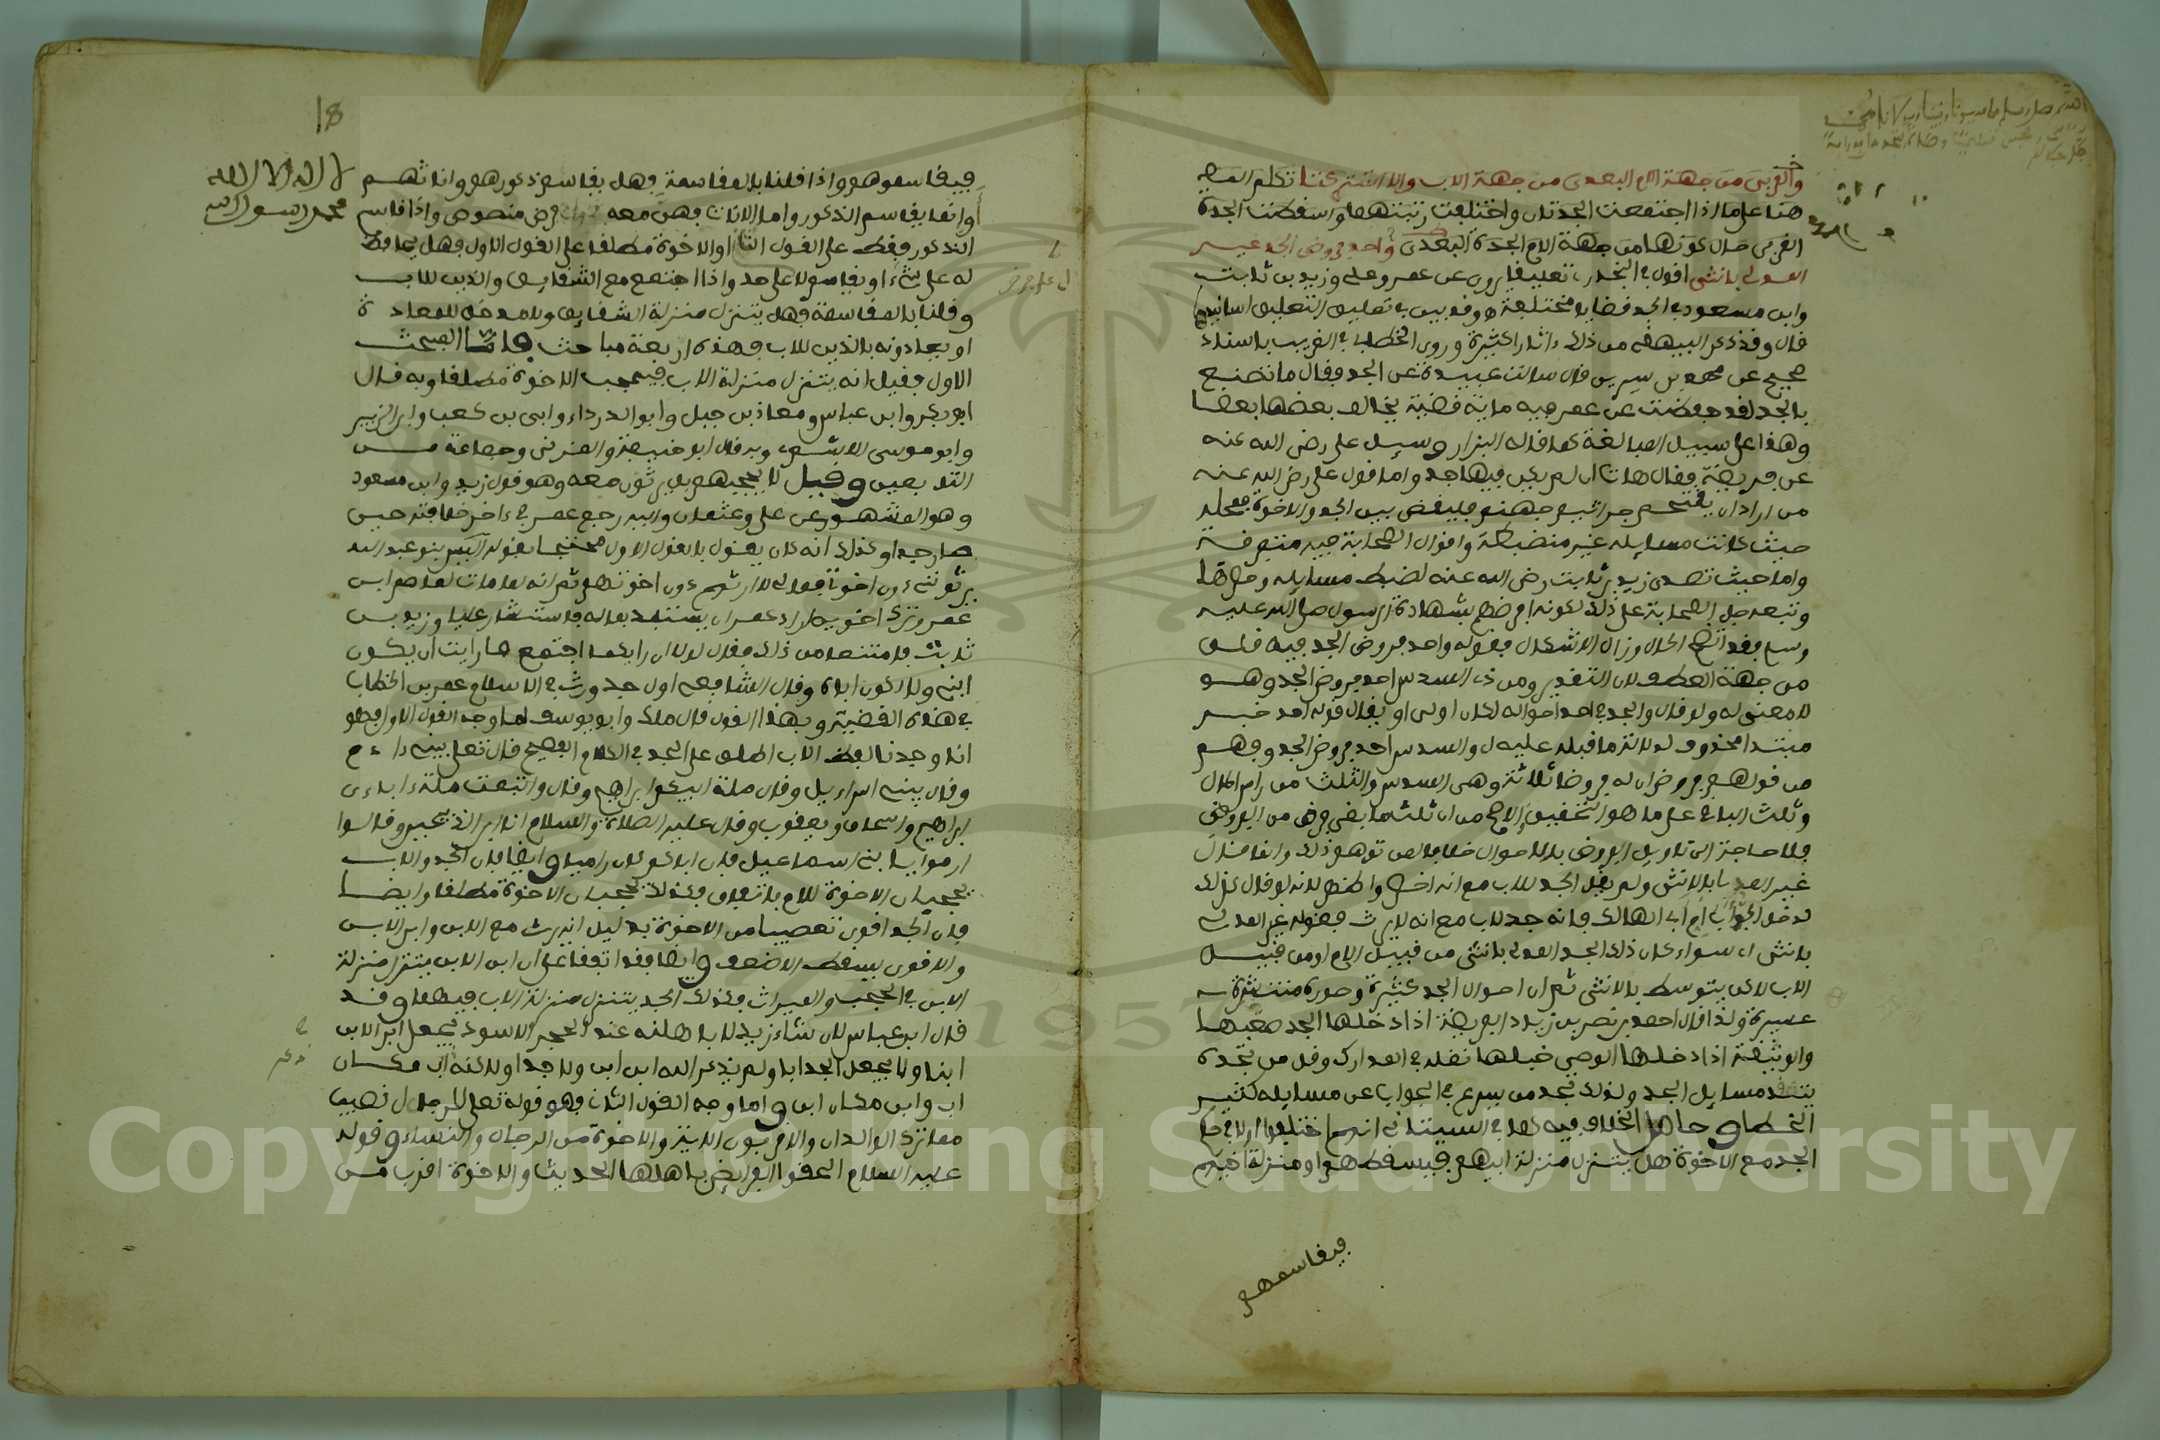 والقربى من جهة الام البعدى من جهة الاب والا اشتركتا تكلم المص
هنا على ما اذا اجتمعت الجدتان واختلفت رتبتهما واسقطت الجدة
القربى حال كونها من جهة الام الجدة البعدى واحد فروض الجد غير
المدلي بانثى اقول في البخاري تعليقا يروى عن عمر وعلي وزيد بن ثابت
وابن مسعود في الجد قضايا مختلفة وقد بين في تعليق التعليق اسانيدها
قال وقد ذكر البيهقي من ذلك ءاثارا كثيرة وروى الخطابي في الغريب باسناد
صحيح عن محمد بن سيرين قال سالت عبيدة عن الجد فقال ما تصنع
بالجد لقد حفظت عن عمر فيه ماية قضية يخالف بعضها بعضا
وهذا على سبيل المبالغة كما قاله البزار وسيل علي رضي الله عنه
عن فريضة فقال هات ان لم يكن فيها جد واما قول علي رضي الله عنه
من اراد ان يقتحم جراثيم جهنم فليقض بين الجد والاخوة فمحله
حيث كانت مسايله غير منضبطة واقوال الصحابة فيه متفرقة
واما حيث تصدى زيد بن ثابت رضي الله عنه لضبط مسايله
وتبعه جل الصحابة على ذلك لكونه افرضهم بشهادة الرسول صلى الله عليه
وسلم فقد اتضح الحال وزال الاشكال فقوله واحد فروض الجد فيه قلق
من جهة العطف لان التقدير ومن ذي السدس احد فروض الجد وهو
لا معنى له ولو قال والجد في احد احواله لكان اولى او يقال قوله احد خبر
مبتدا محذوف لدلالة ما قبله عليه اي والسدس احد فروض الجد وفهم
من قولهم فروض ان له فروضا ثلاثة وهي السدس والثلث من راس المال
وثلث الباقي على ما هو التحقيق الاصح من ان ثلث ما بقي فرض من الفروض
فلا حاجة الى تاويل الفروض بالاحوال خلافا لمن توهم ذلك وانما قال
غير المدلي بالانثى ولم يقل الجد للاب مع انه اخصر واظهر لانه لو قال كذلك
لدخل الجد ابي ام ابي الهالك فانه جد لاب مع انه لا يرث فقوله غير المدلي
بانثى اي سواء كان ذلك الجد المدلي بانثى من قبيل الام او من قبيل
الاب لاكن بتوسط بالانثى ثم ان احوال الجد كثيرة وصوره منتشرة
عسيرة ولذا قال احمد بن نصر بن زياد الفريضة اذا دخلها الجد صعبها
والوثيقة اذا دخلها الوصي خبلها نقله في المدارك وقل من تجده
يتقد مسايل الجد ولذلك تجد من يسرع في الجواب عن مسايله كثير
الخطا وحاصل الخلاف فيه كما في السيتاني انهم اختلفوا اولا في حال
الجد مع الاخوة هل يتنزل منزلة ابيهم فيسقطهم او منزلة اخيهم
فيقاسمهم
18
لا اله الا الله
محمد رسول الله
فيقاسموهم واذا قلنا بالمقاسمة فهل يقاسم ذكورهم واناثهم
او انما يقاسم الذكور واما الاناث فهن معه ذوات فرض منصوص واذا قاسم
الذكور فقط على القول الثاني او الاخوة مطلقا على القول الاول فهل يحافظ
له على شيء او يقاسم ولا على حد واذا اجتمع مع الشقايق والذين للاب
وقلنا بالمقاسمة فهل يتنزل منزلة الشقايق ولا مدخل للمعادة
او يعادونه بالذين للاب فهذه اربعة مباحث فاما المبحث
الاول فقيل انه يتنزل منزلة الاب فيحجب الاخوة مطلقا وبه قال
ابو بكر وابن عباس ومعاذ بن جبل وابو الدرداء وابي بن كعب وابن الزبير
وابو موسى الاشعري وبه قال ابو حنيفة والمزني وجماعة من
التابعين وقيل لا يحجبهم بل يرثون معه وهو قول زيد وابن مسعود
وهو المشهور عن علي وعثمان واليه رجع عمر في ءاخر خلافته حين
صار جدا وكذلك انه كان يقول بالقول الاول محتجا بقوله بنو عبد الله
يرثونني دون اخوتي فما لي لا ارثهم دون اخوتهم ثم انه لما مات عاصم ابن
عمر وترك اخويه اراد عمر ان يستبد بماله فاستشار عليا وزيد بن
ثابت فامتنعا من ذلك فقال لولا ان رايكما اجتمع ما رايت ان يكون
ابني ولا اكون اباه وقال الشافعي اول جد ورث في الاسلام عمر بن الخطاب
في هذه القضية وبهذا القول قال مالك وابو يوسف اما وجه القول الاول فهو
انا وجدنا لفظ الاب اطلق على الجد في الكلام الفصيح قال تعلى يبني ءادم
وقال يبني اسراءيل وقال ملة ابيكم ابراهيم وقال واتبعت ملة ءاباءي
ابراهيم واسحاق ويعقوب وقال عليه الصلاة والسلام انا ابن الذبيحين وقال
ارموا يا بني اسماعيل فان اباكم كان راميا وايضا فان الجد والاب
يحجبان الاخوة للام باتفاق فكذلك يحجبان الاخوة مطلقا وايضا
فان الجد اقوى تعصيبا من الاخوة بدليل انه يرث مع الابن وابن الابن
والاقوى يسقط الاضعف وايضا فقد اتفقا على ان ابن الابن يتنزل منزلة
الابن في الحجب والميراث فكذلك الجد يتنزل منزلة الاب فيهما وقد
قال ابن عباس لان شاء زيد لاباهلنه عند الحجر الاسود يجعل ابن الابن
ابنا ولا يجعل الجد ابا ولم يذكر الله ابن ابن ولا جدا ولاكنه اب مكان
اب وابن مكان ابن واما وجه القول الثاني فهو قوله تعلى للرجال نصيب
مما ترك الوالدان والاقربون الاية والاخوة من الرجال والنساء وقوله
عليه السلام الحقوا الفرايض باهلها الحديث والاخوة اقرب من
Copyright © King Saud University
1957